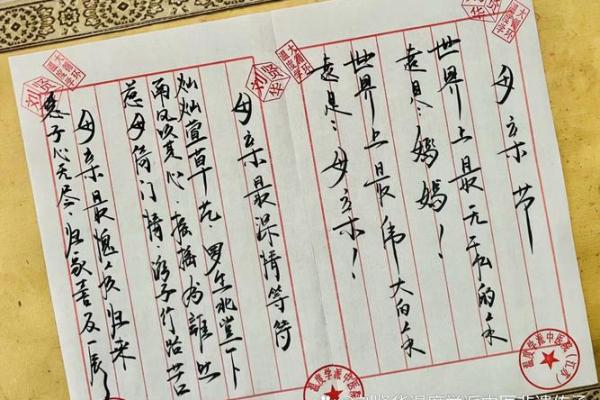 母亲节
世界上最无私的爱
是：妈妈！
世界上最伟大的爱
是：母亲！
母亲最深情等待
灿灿萱草花，罗生北堂下
南风吹其心，摇摇为谁吐
慈母倚门情，游子行路苦
母亲最愧疚归来
爱子心无尽，归家喜及辰
刘贤华
温度学派中医院（江苏）